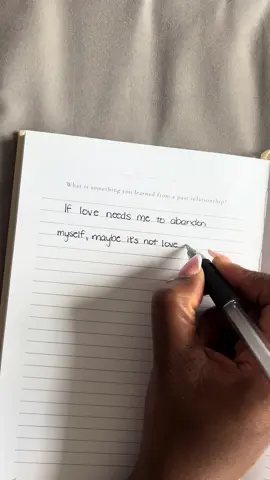 What is something you learned from a past relationship?
If love needs me to abandon
myself, maybe it's not love